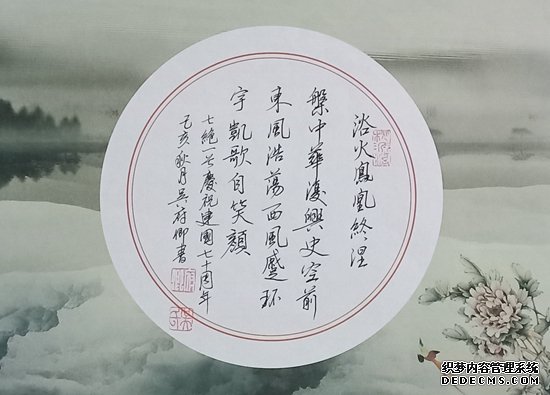 浴火鳳凰終涅
槃中華復興史空前
東風浩蕩西風蹙環
宇凱歌自笑顏
七絕一首慶祝建國七十周年
己亥秋月吴卿書
织梦内容管理系统
DEDECMS.COM